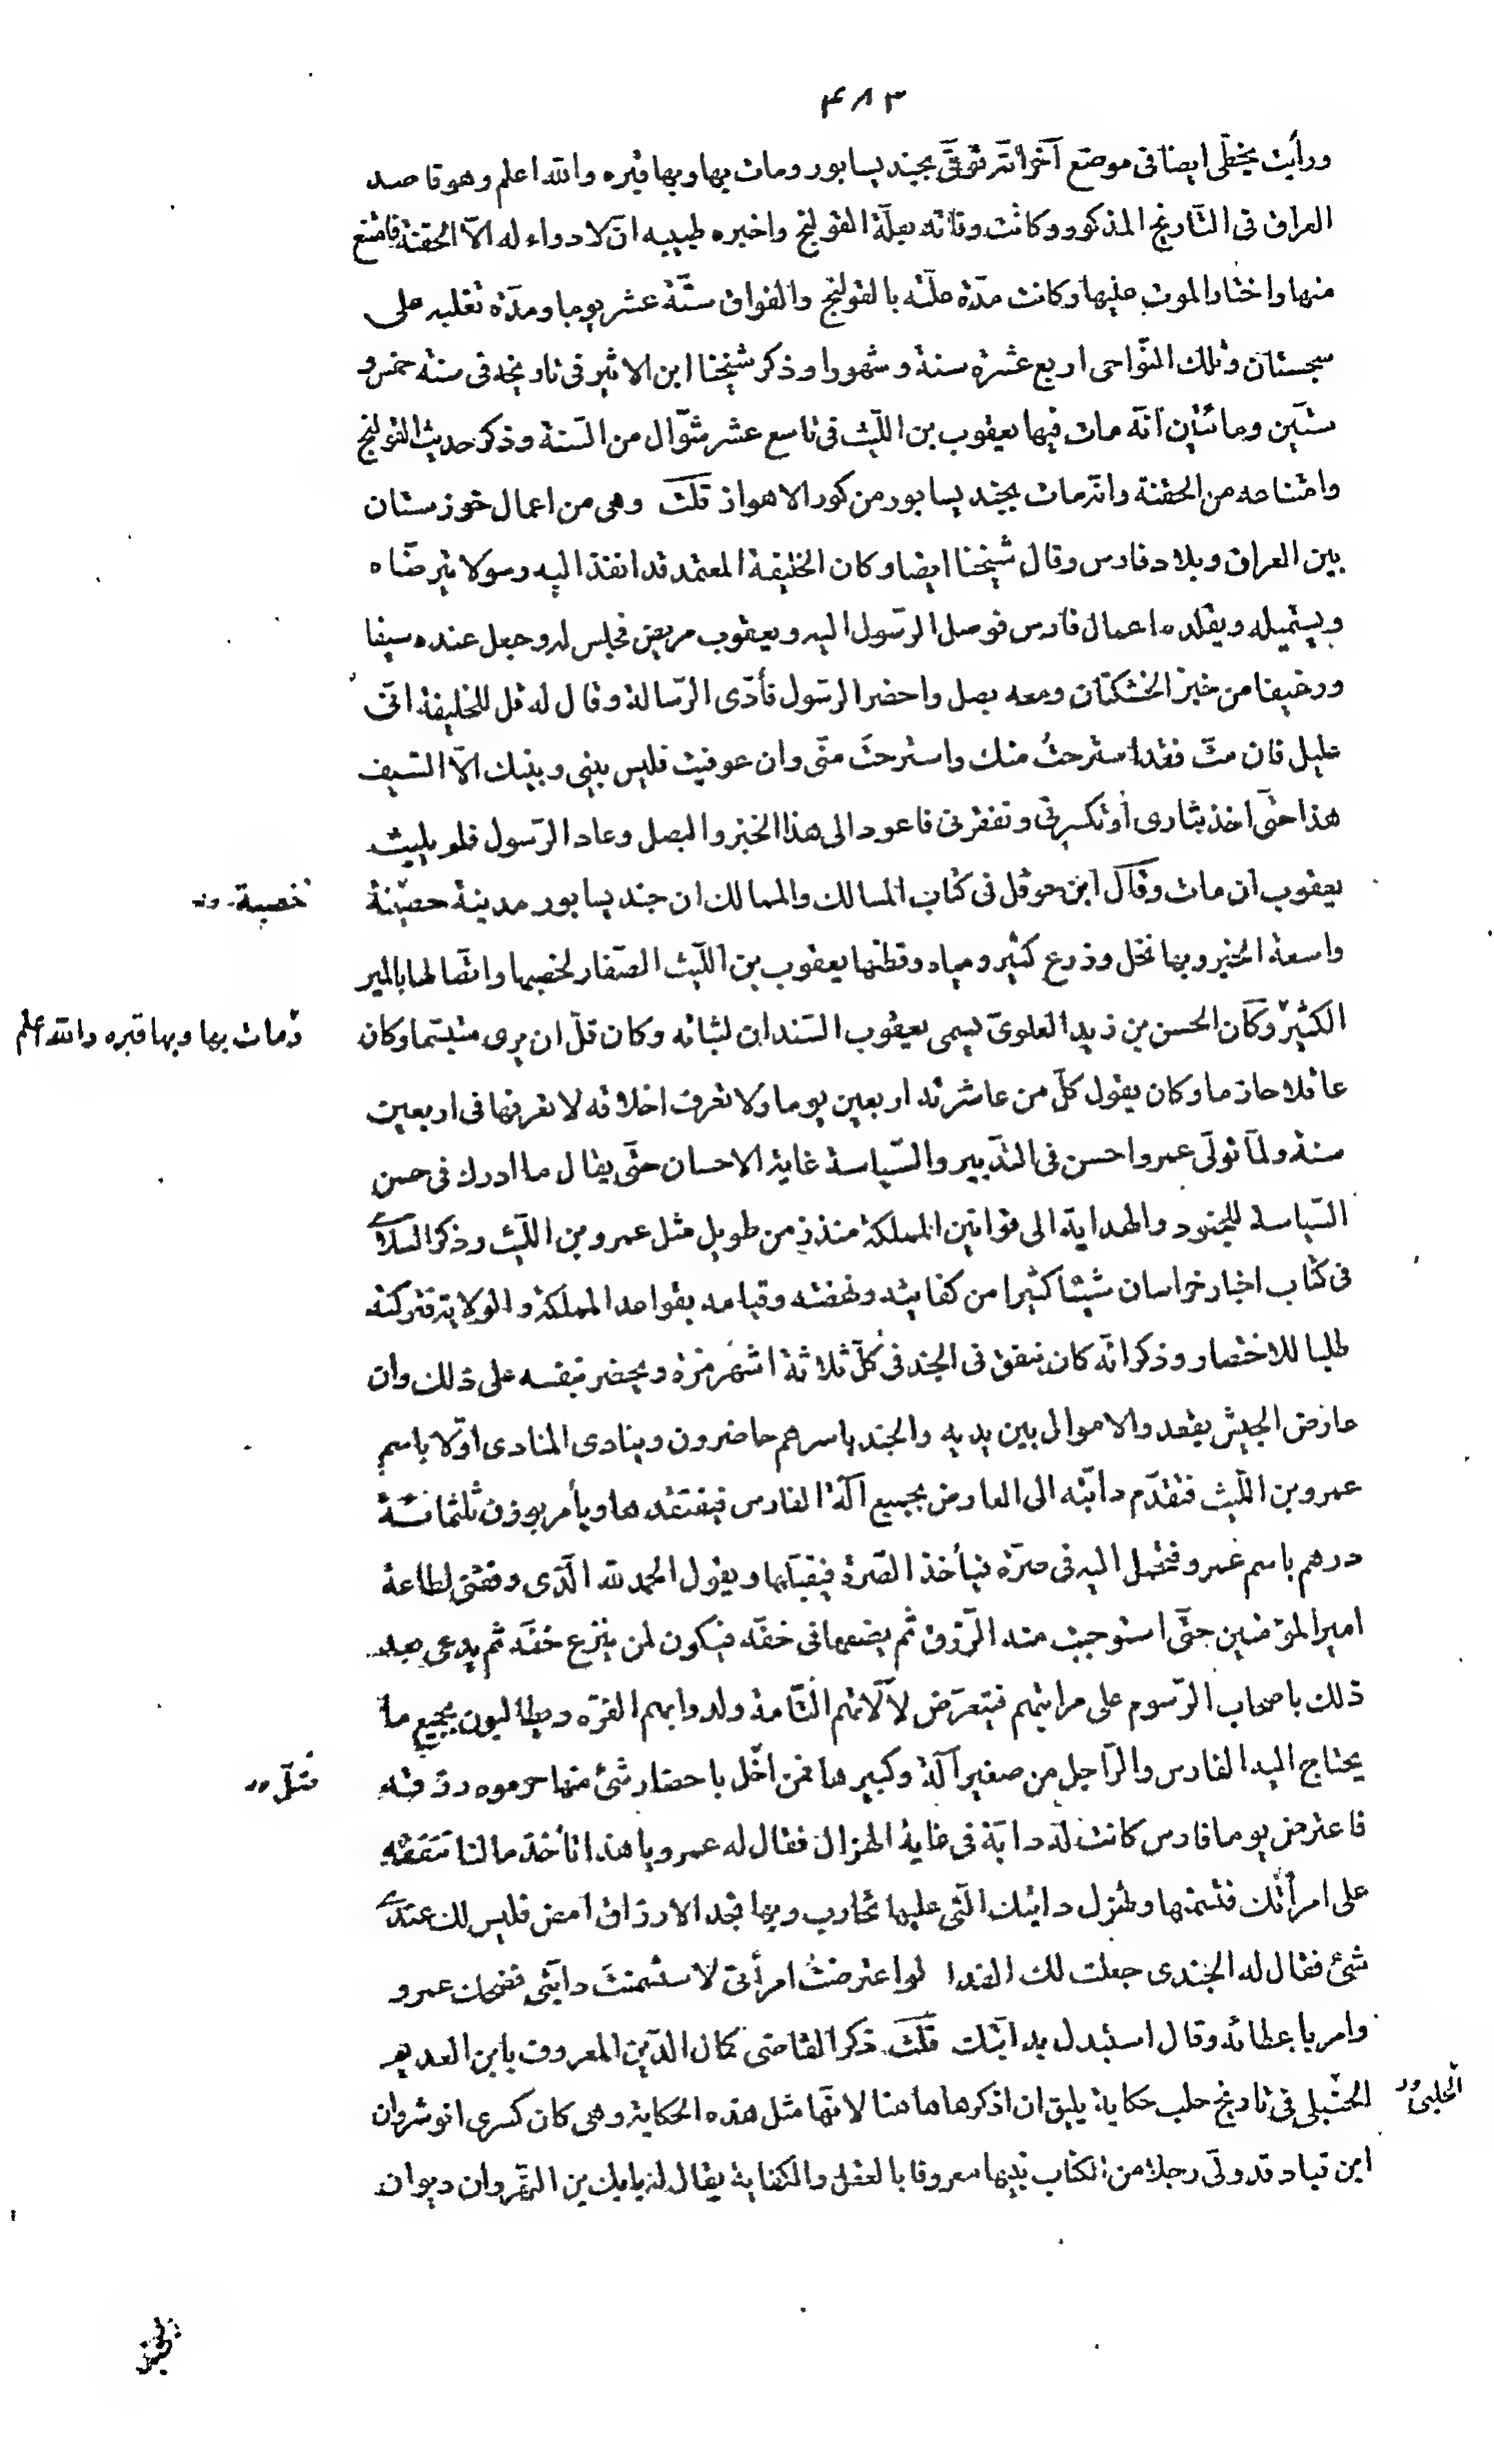 ٤٨٣
ورأيت بخطى ايضا فى موضع آخر انه توفى بجند يسابور ومات بها وبها قبره والله اعلم وهو قاصد
العراق فى التاريخ المذكور وكانت وفاته بعلّة القولنج واخبره طبيبه ان لا دواء له الّا الحقنة فامتنع
منها واختار الموت عليها وكانت مدّة علّته بالقولنج والفواق ستّة عشر يوما ومدّة تغلبه على
سجستان وتلك النّواحى اربع عشرة سنة وشهورا وذكر شيخنا ابن الاثير فى تاريخه فى سنة خمس و
ستّين ومائتين انّه مات فيها يعقوب بن اللّيث فى تاسع عشر شوّال من السّنة وذكر حديث القولنج
وامتناعه من الحقنة وانه مات بجند يسابور من كور الاهواز قلت وهى من اعمال خوزستان
بين العراق وبلاد فارس وقال شيخنا ايضا وكان الخليفة المعتمد قد انفذ اليه رسولا يترضّاه
ويستميله ويقلده اعمال فارس فوصل الرّسول اليه ويعقوب مريض فجلس له وجعل عنده سيفا
ورغيفا من خبز الخشكتان ومعه بصل واحضر الرسول فأدّى الرّسالة وقال له قل للخليفة انّى
عليل فان متّ فقد استرحتُ منك واسترحتَ منّى وان عوفيت فليس بينى وبينك الّا السّيف
هذا حتّى اخذ بثارى او تكسرنى وتفقرنى فاعود الى هذا الخبز والبصل وعاد الرّسول فلم يلبث
يعقوب ان مات وقال ابن حوقل فى كتاب المسالك والممالك ان جند يسابور مدينة حصينة
خصبة
واسعة الخير وبها نخل وزرع كثير ومياه وقطنها يعقوب بن اللّيث الصّفار لخصبها واتّصالها بالمير
الكثير وكان الحسن بن زيد العلوىّ يسمى يعقوب السّندان لثباته وكان قلّ ان يرى متبسّما وكان
ومات بها وبها قبره والله اعلم
عاقلا حازما وكان يقول كلّ من عاشرته اربعين يوما ولا تعرف اخلاقه لا تعرفها فى اربعين
سنة ولمّا تولّى عمرو احسن فى التّدبير والسّياسة غاية الاحسان حتّى يقال ما ادرك فى حسن
السّياسة للجنود والهداية الى قوانين المملكة منذ زمن طويل مثل عمرو بن اللّيث وذكر السلامى
فى كتاب اخبار خراسان شيئا كثيرا من كفايته ونهضته وقيامه بقواعد المملكة والولاية فتركته
طلبا للاختصار وذكر انّه كان ينفق فى الجند فى كلّ ثلاثة اشهر مرّة ويحضر بنفسه على ذلك وان
عارض الجيش يقعد والاموال بين يديه والجند باسرهم حاضرون وينادى المنادى اوّلا باسم
عمرو بن اللّيث فتقدّم دابّته الى العارض بجميع آلة الفارس فيفتقدها ويأمر بوزن ثلثمائة
درهم باسم عمرو فتحمل اليه فى صرّة فيأخذ الصّرة فيقبّلها ويقول الحمد لله الّذى وفقنى لطاعة
امير المؤمنين حتّى استوجبت منه الرّزق ثم يضعها فى خفّه فيكون لمن ينزع خفّه ثم يدعى بعد
ذلك باصحاب الرّسوم على مراتبهم فيتعرّض لآلاتهم التّامة ولدوابهم الفرّه ويطالبون بجميع ما
يحتاج اليه الفارس والرّاجل من صغير آلة وكبيرها فمن اخّل باحضار شئ منها حرموه رزقه
فاعترض يوما فارس كانت له دابّة فى غاية الهزال فقال له عمرو يا هذا تأخذ مالنا تنفقه
على امرأتك فتسمنها وتهزل دابتك الّتى عليها تحارب وبها تجد الارزاق امض فليس لك عندى
شئ فقال له الجندى جعلت لك الفدا لو اعترضتَ امرأتى لاستسمنتَ دابّتى فضحك عمرو
وامر باعطائه وقال استبدل بدابّتك قلت ذكر القاضى كمال الدّين المعروف بابن العديم
الحنبلى فى تاريخ حلب حكاية يليق ان اذكرها هاهنا لانّها مثل هذه الحكاية وهى كان كسرى انوشروان
الحلبى
ابن قباد قد ولّى رجلا من الكتاب نبيها معروفا بالعقل والكفاية يقال له بابك بن النّهروان ديوان